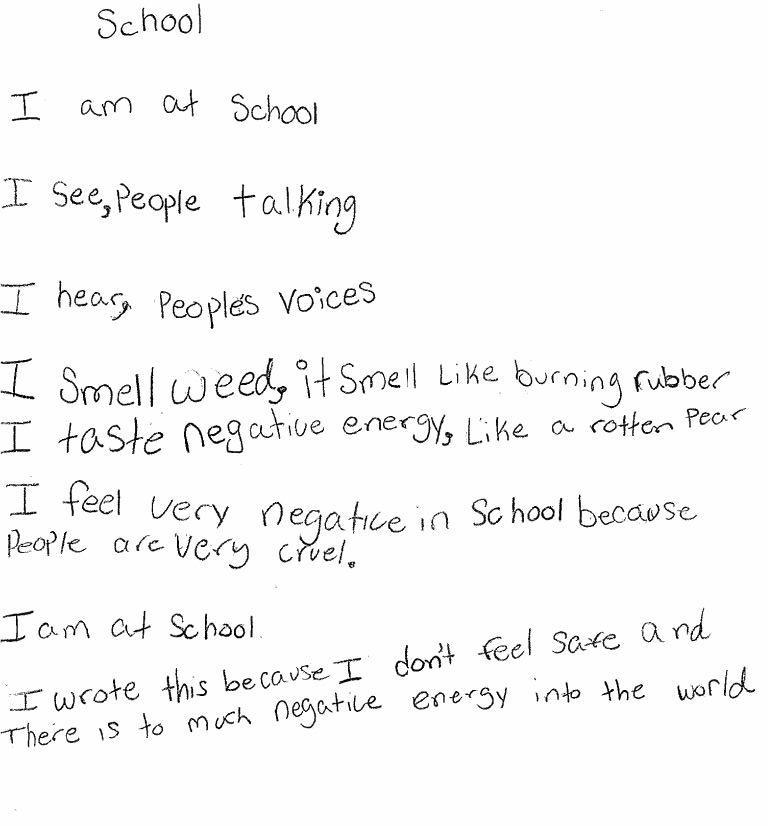 School
I am at School
I See, People talking
I hear, People's voices
I Smell weed, it Smell Like burning rubber
I taste negative energy, Like a rotten Pear
I feel very negative in School because
People are very cruel.
I am at School.
I wrote this because I don't feel Safe and
There is to much negative energy into the world